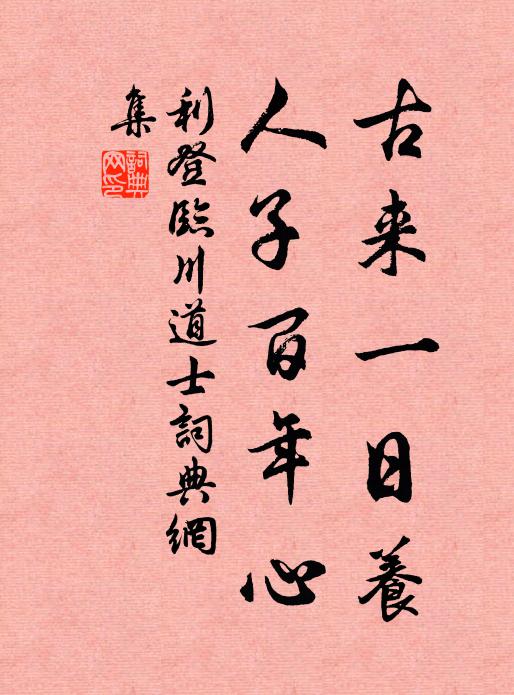 古来一日養
人子百年心
利登臨川道士詞典網
集
詞典
网印